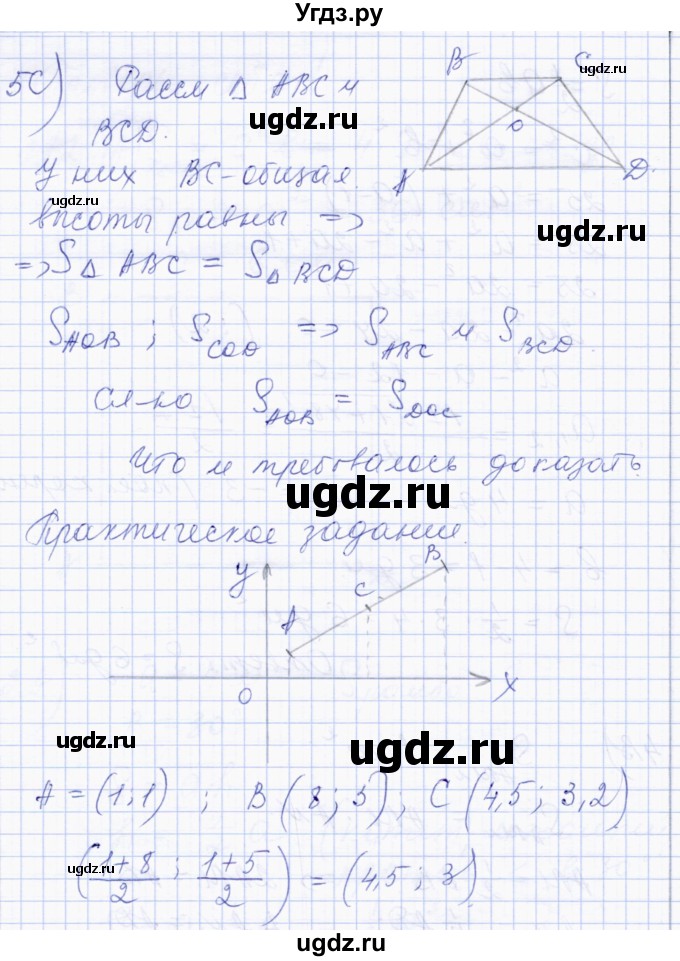 Угдз.ру
50) Рассм △ ABC и
BCD.
B C
O
A D
ugdz.ru
ugdz.ru
У них BC-общая.
ugdz.ru
ugdz.ru
высоты равны =>
=> S△ABC = S△BCD
S AOB ; S COD => S ABC и S BCD.
сл-но S AOB = S DOC
Что и требовалось доказать.
ugdz.ru
Практическое задание.
y A C B
0 x
ugdz.ru
ugdz.ru
A = (1; 1) ; B (8; 5), C (4,5; 3,2)
ugdz.ru
(1+8/2 ; 1+5/2) = (4,5; 3)
ugdz.ru
ugdz.ru